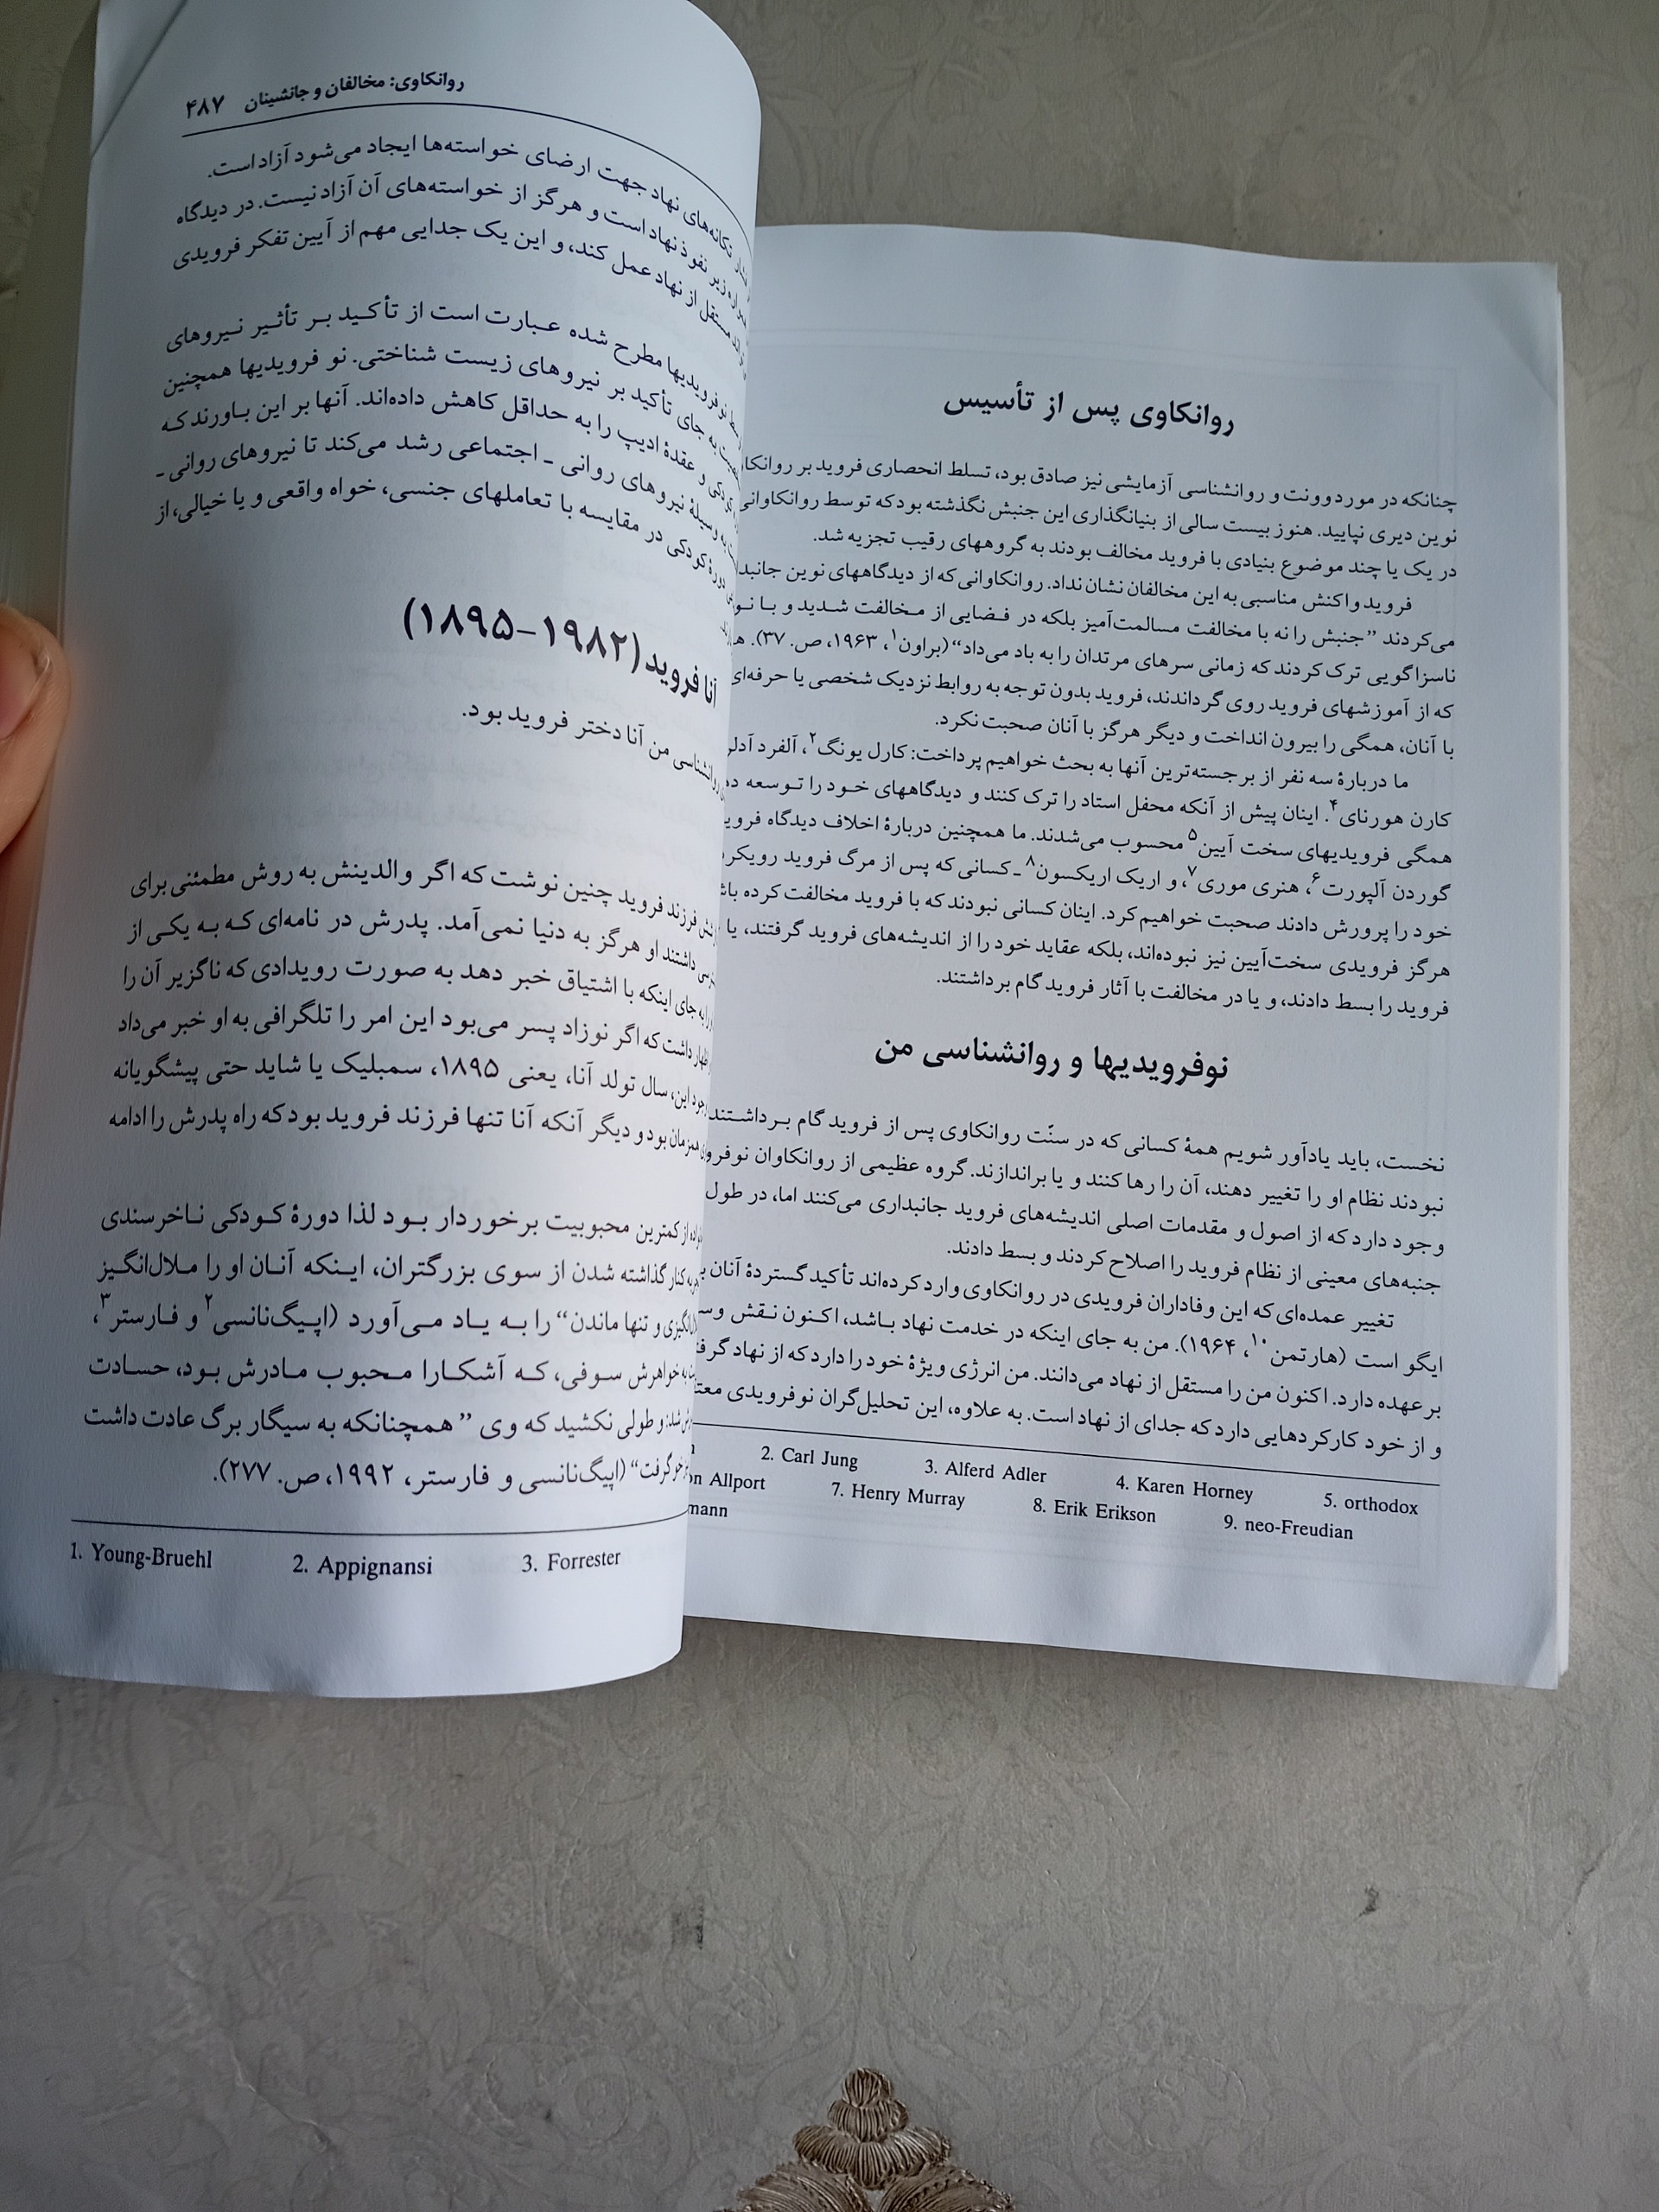 روانکاوی پس از تأسیس
چنانکه در مورد وونت و روانشناسی آزمایشی نیز صادق بود، تسلط انحصاری فروید بر
نوین دیری نپایید. هنوز بیست سالی از بنیانگذاری این جنبش نگذشته بود که توسط روانکاوانی
در یک یا چند موضوع بنیادی با فروید مخالف بودند به گروههای رقیب تجزیه شد.
فروید واکنش مناسبی به این مخالفان نشان نداد. روانکاوانی که از دیدگاههای نوین
می‌کردند ”جنبش را نه با مخالفت مسالمت‌آمیز بلکه در فضایی از مخالفت شدید و با
ناسزاگویی ترک کردند که زمانی سرهای مرتدان را به باد می‌داد“ (براون۱، ۱۹۶۳، ص. ۳۷).
که از آموزشهای فروید روی گرداندند، فروید بدون توجه به روابط نزدیک شخصی یا حرفه‌ای
با آنان، همگی را بیرون انداخت و دیگر هرگز با آنان صحبت نکرد.
ما دربارهٔ سه نفر از برجسته‌ترین آنها به بحث خواهیم پرداخت: کارل یونگ۲، آلفرد آدلر
کارن هورنای۴. اینان پیش از آنکه محفل استاد را ترک کنند و دیدگاههای خود را توسعه
همگی فرویدیهای سخت آیین۵ محسوب می‌شدند. ما همچنین دربارهٔ اخلاف دیدگاه
گوردن آلپورت۶، هنری موری۷، و اریک اریکسون۸ ـ کسانی که پس از مرگ فروید
خود را پرورش دادند صحبت خواهیم کرد. اینان کسانی نبودند که با فروید مخالفت کرده
هرگز فرویدی سخت‌آیین نیز نبوده‌اند، بلکه عقاید خود را از اندیشه‌های فروید گرفتند، یا
فروید را بسط دادند، و یا در مخالفت با آثار فروید گام برداشتند.
نوفرویدیها و روانشناسی من
نخست، باید یادآور شویم همهٔ کسانی که در سنّت روانکاوی پس از فروید گام برداشتند
نبودند نظام او را تغییر دهند، آن را رها کنند و یا براندازند. گروه عظیمی از روانکاوان
وجود دارد که از اصول و مقدمات اصلی اندیشه‌های فروید جانبداری می‌کنند اما، در طول
جنبه‌های معینی از نظام فروید را اصلاح کردند و بسط دادند.
تغییر عمده‌ای که این وفاداران فرویدی در روانکاوی وارد کرده‌اند تأکید گستردهٔ آنان
ایگو است (هارتمن۱۰، ۱۹۶۴). من به جای اینکه در خدمت نهاد باشد، اکنون نقش
بر عهده دارد. اکنون من را مستقل از نهاد می‌دانند. من انرژی ویژهٔ خود را دارد که از نهاد
و از خود کارکردهایی دارد که جدای از نهاد است. به علاوه، این تحلیل‌گران نوفرویدی
2. Carl Jung 3. Alferd Adler 4. Karen Horney 5. orthodox
Allport 7. Henry Murray 8. Erik Erikson 9. neo-Freudian
روانکاوی: مخالفان و جانشینان ۴۸۷
تکانه‌های نهاد جهت ارضای خواسته‌ها ایجاد می‌شود آزاد است.
زیر نفوذ نهاد است و هرگز از خواسته‌های آن آزاد نیست. در دیدگاه
مستقل از نهاد عمل کند، و این یک جدایی مهم از آیین تفکر فرویدی
نوفرویدیها مطرح شده عبارت است از تأکید بر تأثیر نیروهای
به جای تأکید بر نیروهای زیست شناختی. نو فرویدیها همچنین
و عقدهٔ ادیپ را به حداقل کاهش داده‌اند. آنها بر این باورند که
به وسیلهٔ نیروهای روانی ـ اجتماعی رشد می‌کند تا نیروهای روانی ـ
دورهٔ کودکی در مقایسه با تعاملهای جنسی، خواه واقعی و یا خیالی، از
آنا فروید (۱۹۸۲–۱۸۹۵)
روانشناسی من آنا دختر فروید بود.
فرزند فروید چنین نوشت که اگر والدینش به روش مطمئنی برای
داشتند او هرگز به دنیا نمی‌آمد. پدرش در نامه‌ای که به یکی از
به جای اینکه با اشتیاق خبر دهد به صورت رویدادی که ناگزیر آن را
اظهار داشت که اگر نوزاد پسر می‌بود این امر را تلگرافی به او خبر می‌داد
این، سال تولد آنا، یعنی ۱۸۹۵، سمبلیک یا شاید حتی پیشگویانه
همزمان بود و دیگر آنکه آنا تنها فرزند فروید بود که راه پدرش را ادامه
از کمترین محبوبیت برخوردار بود لذا دورهٔ کودکی ناخرسندی
به کنار گذاشته شدن از سوی بزرگتران، اینکه آنان او را ملال‌انگیز
و تنها ماندن“ را به یاد می‌آورد (اپیگ‌نانسی۲ و فارستر۳،
به خواهرش سوفی، که آشکارا محبوب مادرش بود، حسادت
و طولی نکشید که وی ”همچنانکه به سیگار برگ عادت داشت
خو گرفت“ (اپیگ‌نانسی و فارستر، ۱۹۹۲، ص. ۲۷۷).
1. Young-Bruehl 2. Appignansi 3. Forrester